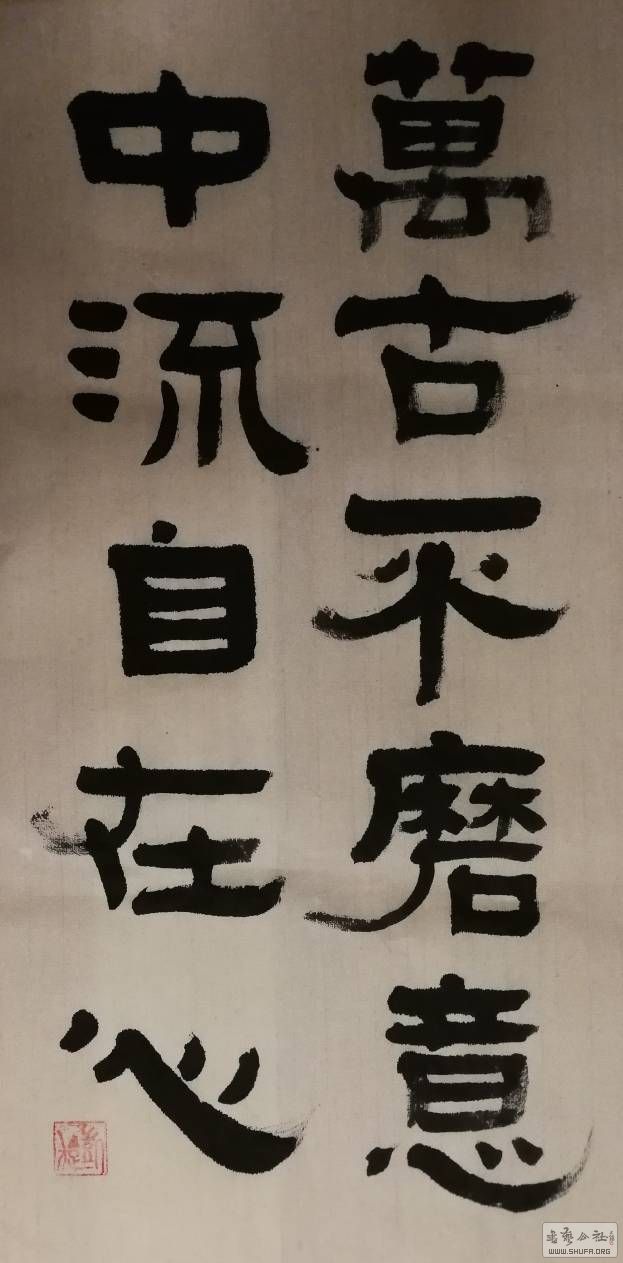 萬古不磨意
中流自在心
WWW.SHUFA.ORG